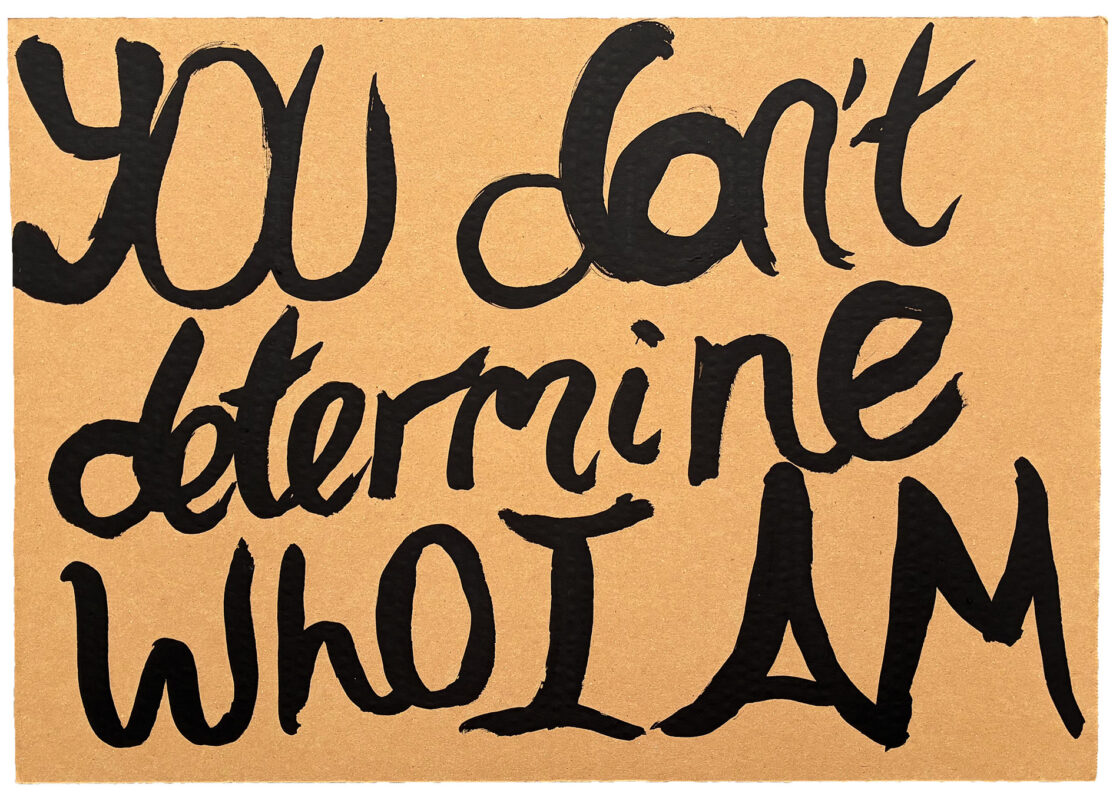 you don't
determine
Who I AM